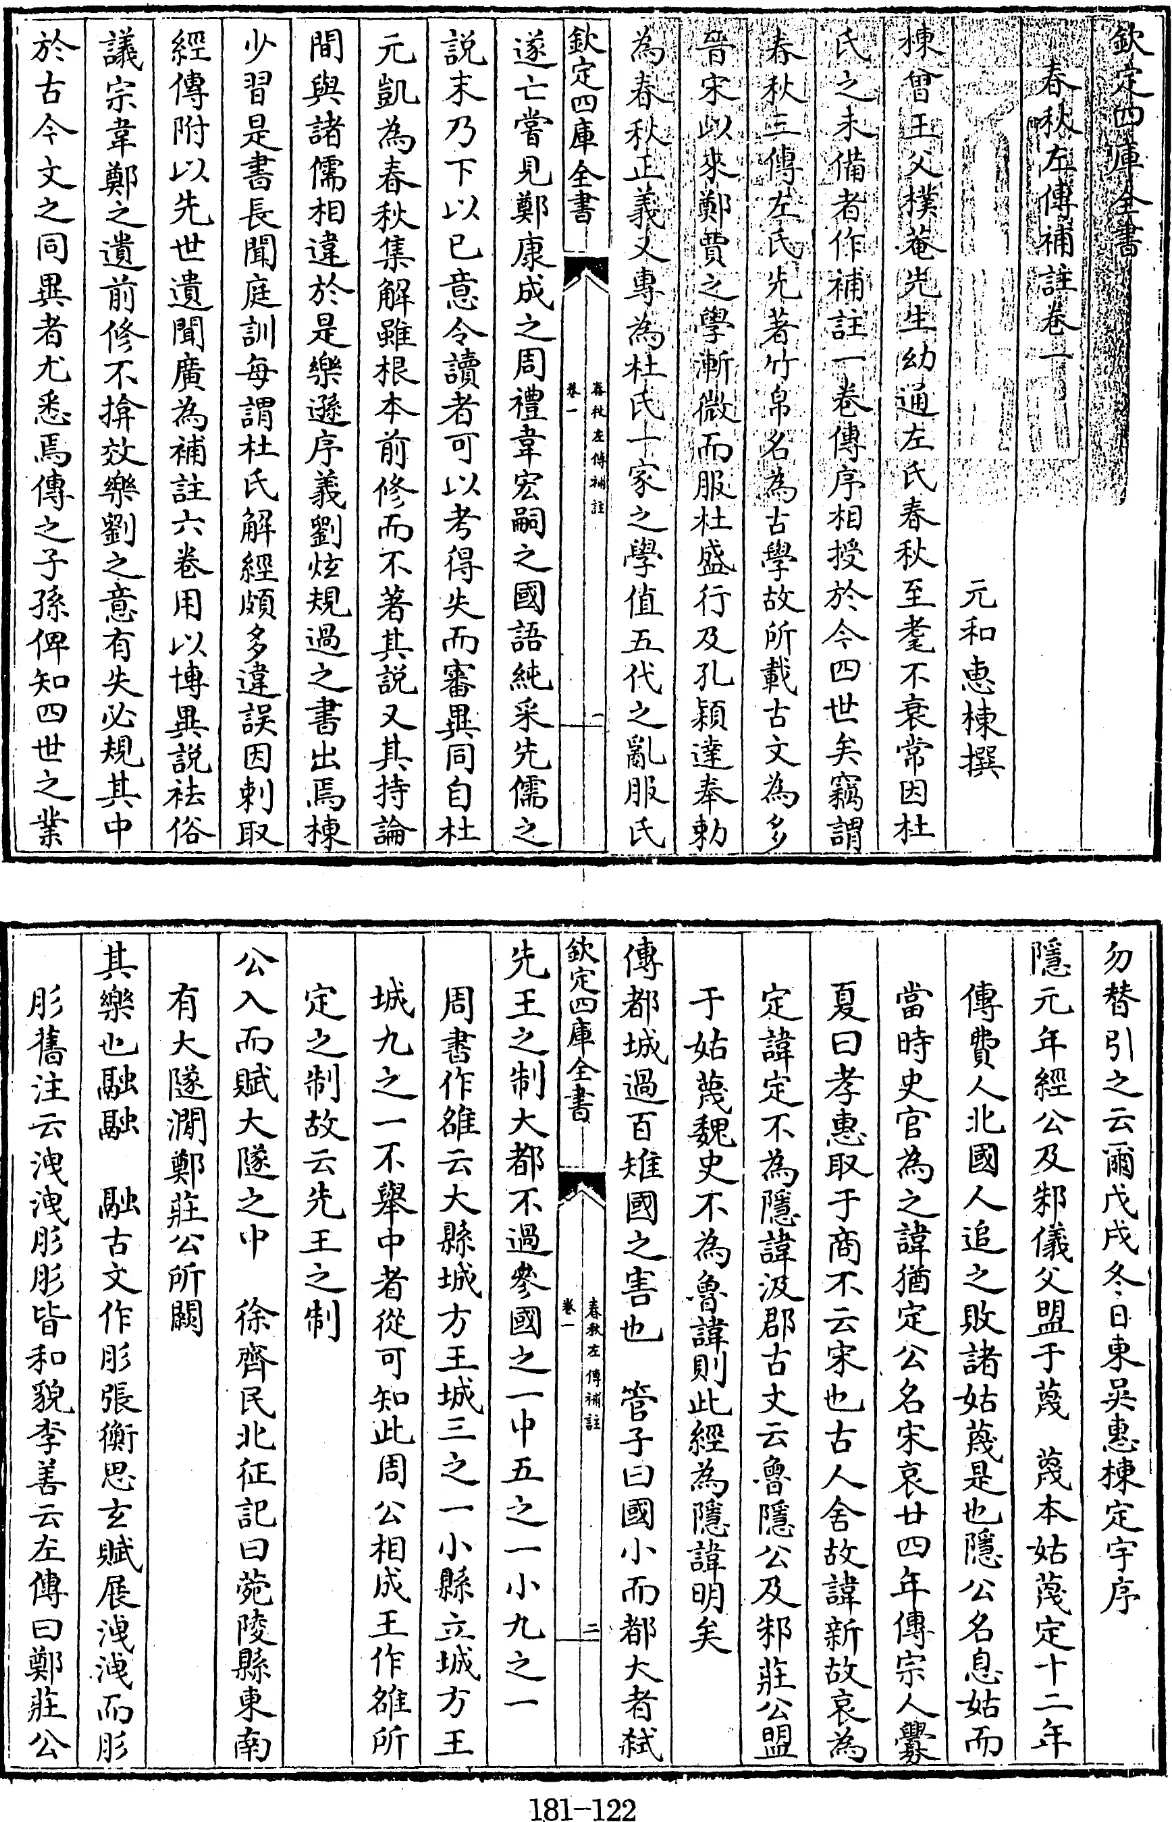 欽定四庫全書
春秋左傳補註卷一
元和惠棟撰
棟曾王父樸菴先生幼通左氏春秋至耄不衰常因杜
氏之未備者作補註一卷傳序相授於今四世矣竊謂
春秋三傳左氏先著竹帛名為古學故所載古文為多
晉宋以來鄭賈之學漸微而服杜盛行及孔穎達奉勅
為春秋正義又專為杜氏一家之學值五代之亂服氏
欽定四庫全書
春秋左傳補註
卷一
一
遂亡嘗見鄭康成之周禮韋宏嗣之國語純采先儒之
說末乃下以已意令讀者可以考得失而審異同自杜
元凱為春秋集解雖根本前修而不著其說又其持論
間與諸儒相違於是樂遜序義劉炫規過之書出焉棟
少習是書長聞庭訓每謂杜氏解經頗多違誤因刺取
經傳附以先世遺聞廣為補註六卷用以博異説祛俗
議宗韋鄭之遺前修不揜效樂劉之意有失必規其中
於古今文之同異者尤悉焉傳之子孫俾知四世之業
勿替引之云爾戊戌冬日東吳惠棟定宇序
隱元年經公及邾儀父盟于蔑　蔑本姑蔑定十二年
傳費人北國人追之敗諸姑蔑是也隱公名息姑而
當時史官為之諱猶定公名宋哀廿四年傳宗人釁
夏曰孝惠取于商不云宋也古人舍故諱新故哀為
定諱定不為隱諱汲郡古文云魯隱公及邾莊公盟
于姑蔑魏史不為魯諱則此經為隱諱明矣
傳都城過百雉國之害也　管子曰國小而都大者弑
欽定四庫全書
春秋左傳補註
卷一
二
先王之制大都不過參國之一中五之一小九之一
周書作雒云大縣城方王城三之一小縣立城方王
城九之一不舉中者從可知此周公相成王作雒所
定之制故云先王之制
公入而賦大隧之中　徐齊民北征記曰菀陵縣東南
有大隧澗鄭莊公所闕
其樂也融融　融古文作肜張衡思玄賦展洩洩而肜
肜舊注云洩洩肜肜皆和貌李善云左傳曰鄭莊公
181-122